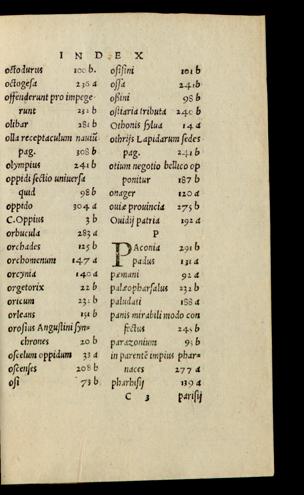 INDEX
octodurus 100 b.
octogesa 236 a
offenderunt pro impege-
runt 252 b
olibar 281 b
olla receptaculum nauiũ
pag. 308 b
olympius 241 b
oppidi sectio uniuersa
quid 98 b
oppido 304 a
C. Oppius 3 b
orbucula 283 a
orchades 125 b
orchomenum 147 a
orcynia 140 a
orgetorix 22 b
oricum 231 b
orleans 151 b
orosius Angustini syn=
chrones 20 b
oscelum oppidum 31 a
oscenses 208 b
osi 73 b
osisini 101 b
ossa 241 b
ossini 98 b
ostiaria tributa 240 b
Othonis sylua 14 a
othrijs Lapidarum sedes
pag. 241 b
otium negotio bellico op
ponitur 187 b
onager 120 a
ouiæ prouincia 275 b
Ouidij patria 192 a
P
PAconia 291 b
padus 131 a
pæmani 92 a
palæopharsalus 232 b
paludati 188 a
panis mirabili modo con
fectus 245 b
parazonium 95 b
in parentẽ impius phar=
naces 277 a
pharhisij 139 a
C 3 parisij